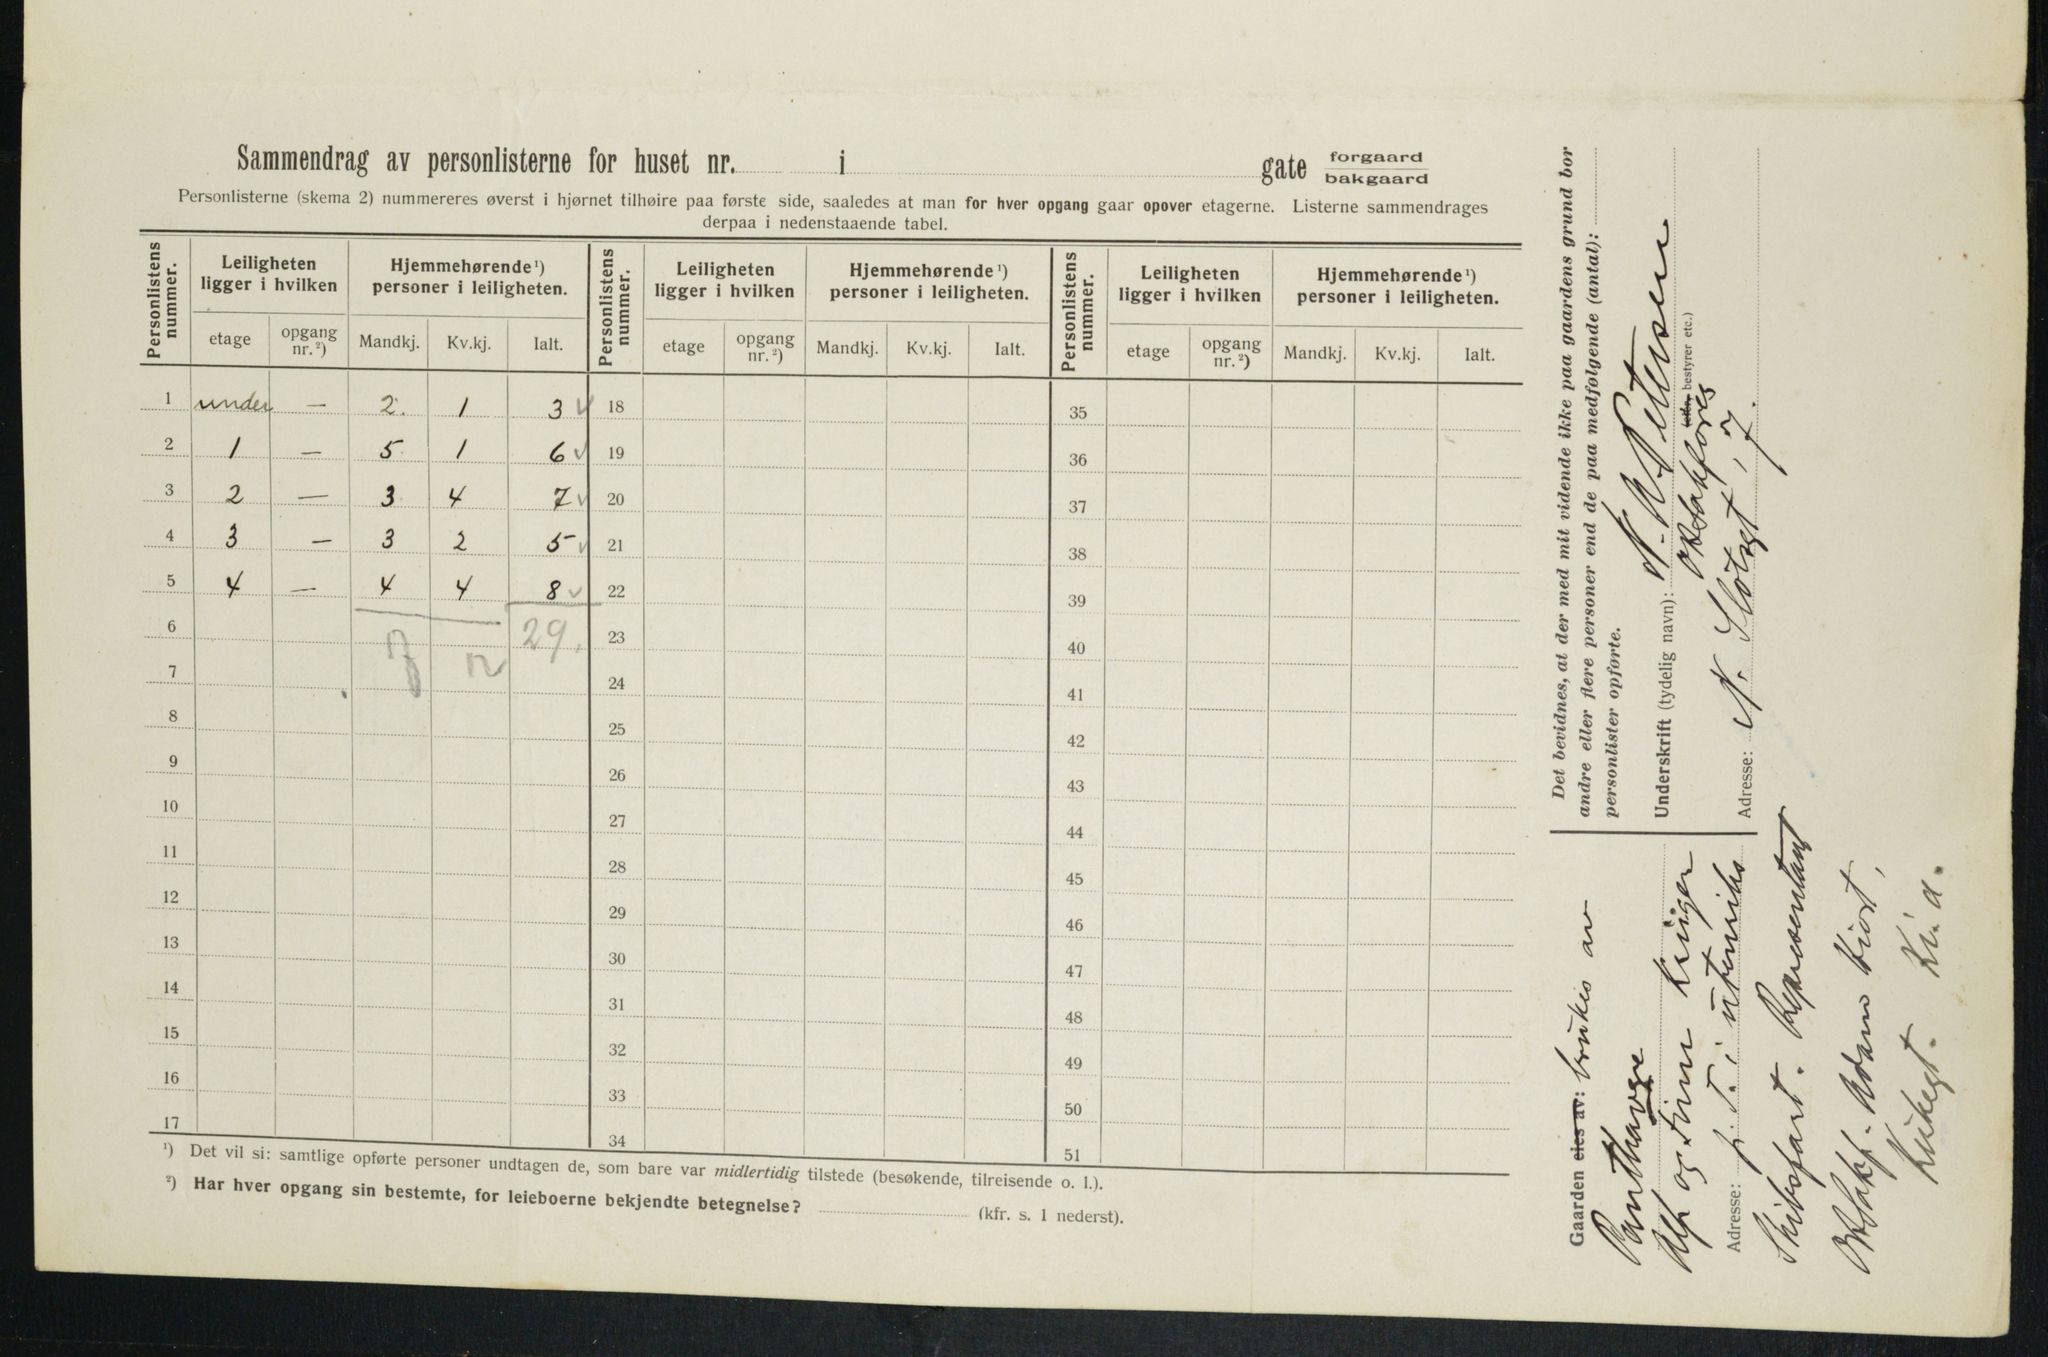 Sammendrag av personlisterne for huset nr. i gate forgaard
bakgaard
Personlisterne (skema 2) nummereres øverst i hjørnet tilhøire paa første side, saaledes at man for hver opgang gaar opover etagerne. Listerne sammendrages
derpaa i nedenstaaende tabel.
Personlistens nummer. Leiligheten ligger i hvilken Hjemmehørende ¹) personer i leiligheten. Personlistens nummer. Leiligheten ligger i hvilken Hjemmehørende ¹) personer i leiligheten. Personlistens nummer. Leiligheten ligger i hvilken Hjemmehørende ¹) personer i leiligheten.
etage opgang nr. ²) Mandkj. Kv.kj. Ialt. etage opgang nr. ²) Mandkj. Kv.kj. Ialt. etage opgang nr. ²) Mandkj. Kv.kj. Ialt.
1 under — 2. 1 3 ✓ 18 35
2 1 — 5. 1 6 ✓ 19 36
3 2 — 3 4 7 ✓ 20 37
4 3 — 3 2 5 ✓ 21 38
5 4 — 4 4 8 ✓ 22 39
6 29. 23 40
7 24 41
8 25 42
9 26 43
10 27 44
11 28 45
12 29 46
13 30 47
14 31 48
15 32 49
16 33 50
17 34 51
¹) Det vil si: samtlige opførte personer undtagen de, som bare var midlertidig tilstede (besøkende, tilreisende o. l.).
²) Har hver opgang sin bestemte, for leieboerne bekjendte betegnelse? (kfr. s. 1 nederst).
Det bevidnes, at der med mit vidende ikke paa gaardens grund bor
andre eller flere personer end de paa medfølgende (antal):
personlister opførte.
Underskrift (tydelig navn): N. A. Pettersen
eller bestyrer etc.)
Adresse: N. Slotsgt, 7.
Gaarden eies av: brukes av
Panthavere
Alf og Finn Krüger
Adresse: p. t. i utenriks
Skibsfart. Representant
O.R.Sakf. Adam Hiort,
Kirkegt. Kr.a.